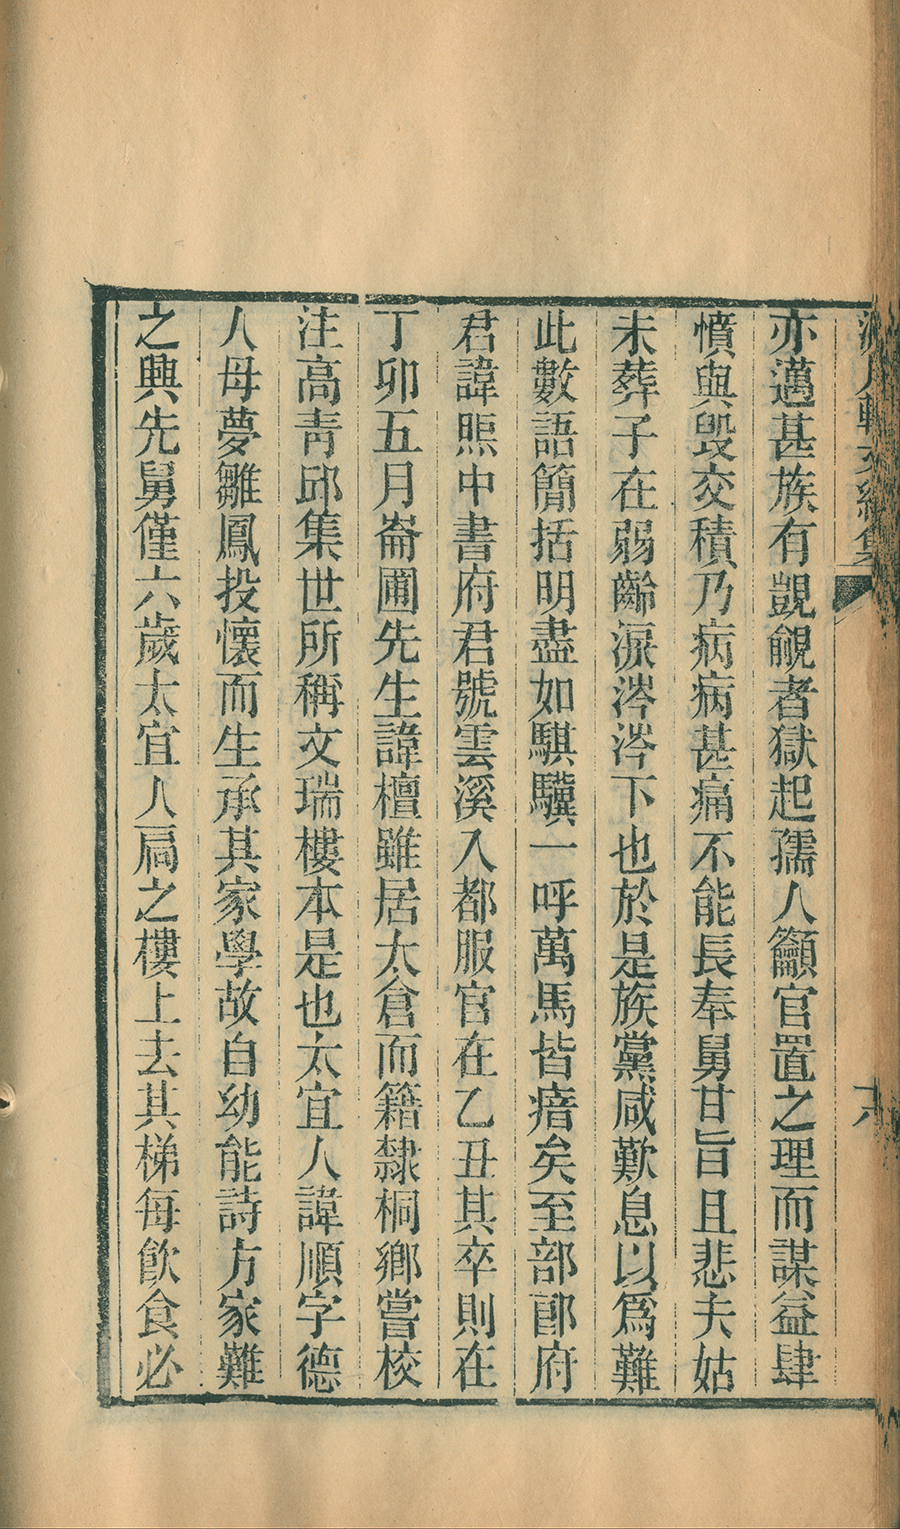 亦邁甚族有覬覦者獄起孺人籲官置之理而謀益肆
憤與毀交積乃病病甚痛不能長奉舅甘旨且悲夫姑
未葬子在弱齡淚涔涔下也於是族黨咸歎息以為難
此數語簡括明盡如騏驥一呼萬馬皆瘖矣至部郎府
君諱煦中書府君號雲溪入都服官在乙丑其卒則在
丁卯五月崙圃先生諱檀雖居太倉而籍隸桐鄉嘗校
注高青邱集世所稱文瑞樓本是也太宜人諱順字德
人母夢雛鳳投懷而生承其家學故自幼能詩方家難
之興先舅僅六歲太宜人扃之樓上去其梯每飲食必